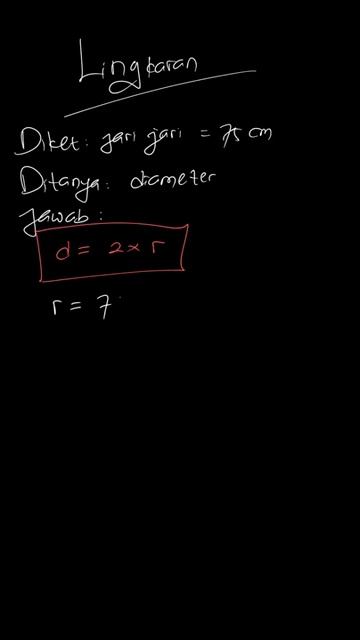 Lingkaran
Diket: jari jari = 75 cm
Ditanya: diameter
Jawab:
d = 2 × r
r = 7